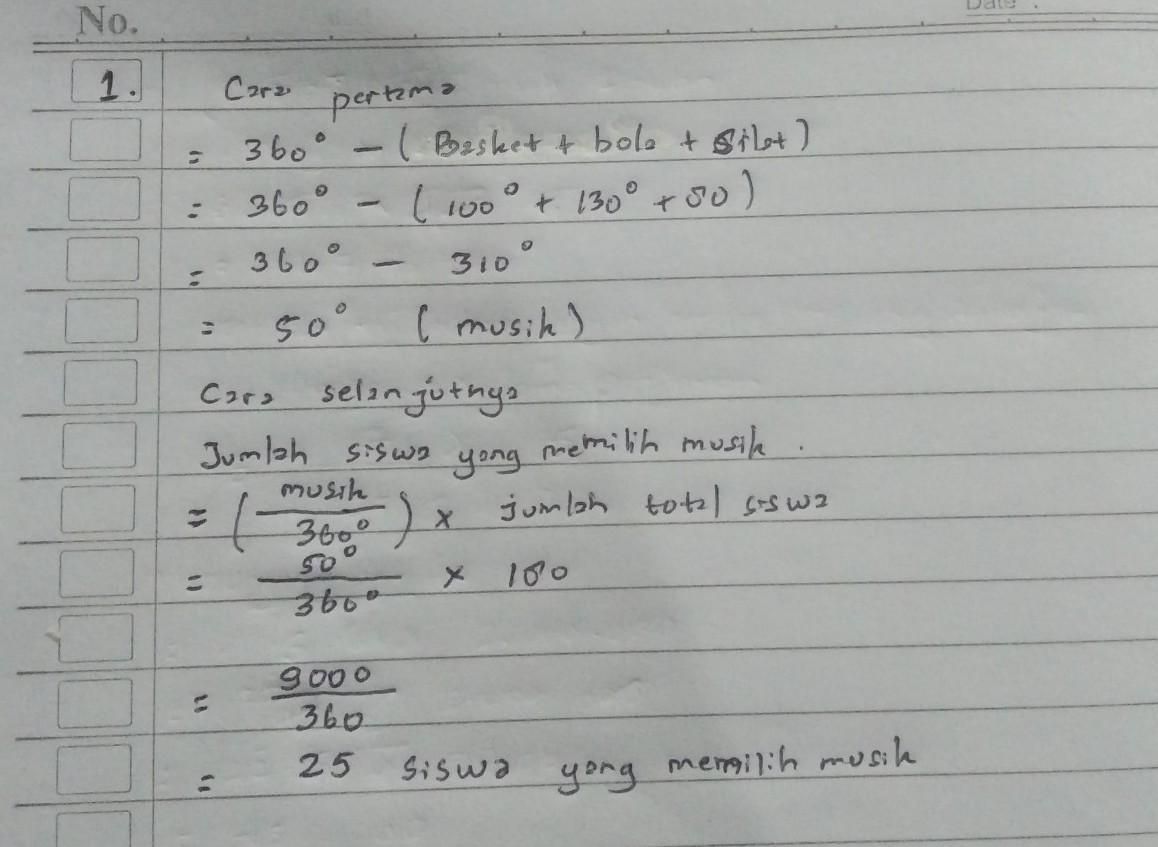 No.
Date .
1. Cara pertama
= 360° - ( Basket + bola + Silat )
= 360° - ( 100° + 130° + 80 )
= 360° - 310°
= 50° ( musik )
Cara selanjutnya
Jumlah siswa yang memilih musik .
= ( musik / 360° ) × jumlah total siswa
= 50° / 360° × 180
= 9000 / 360
= 25 siswa yang memilih musik